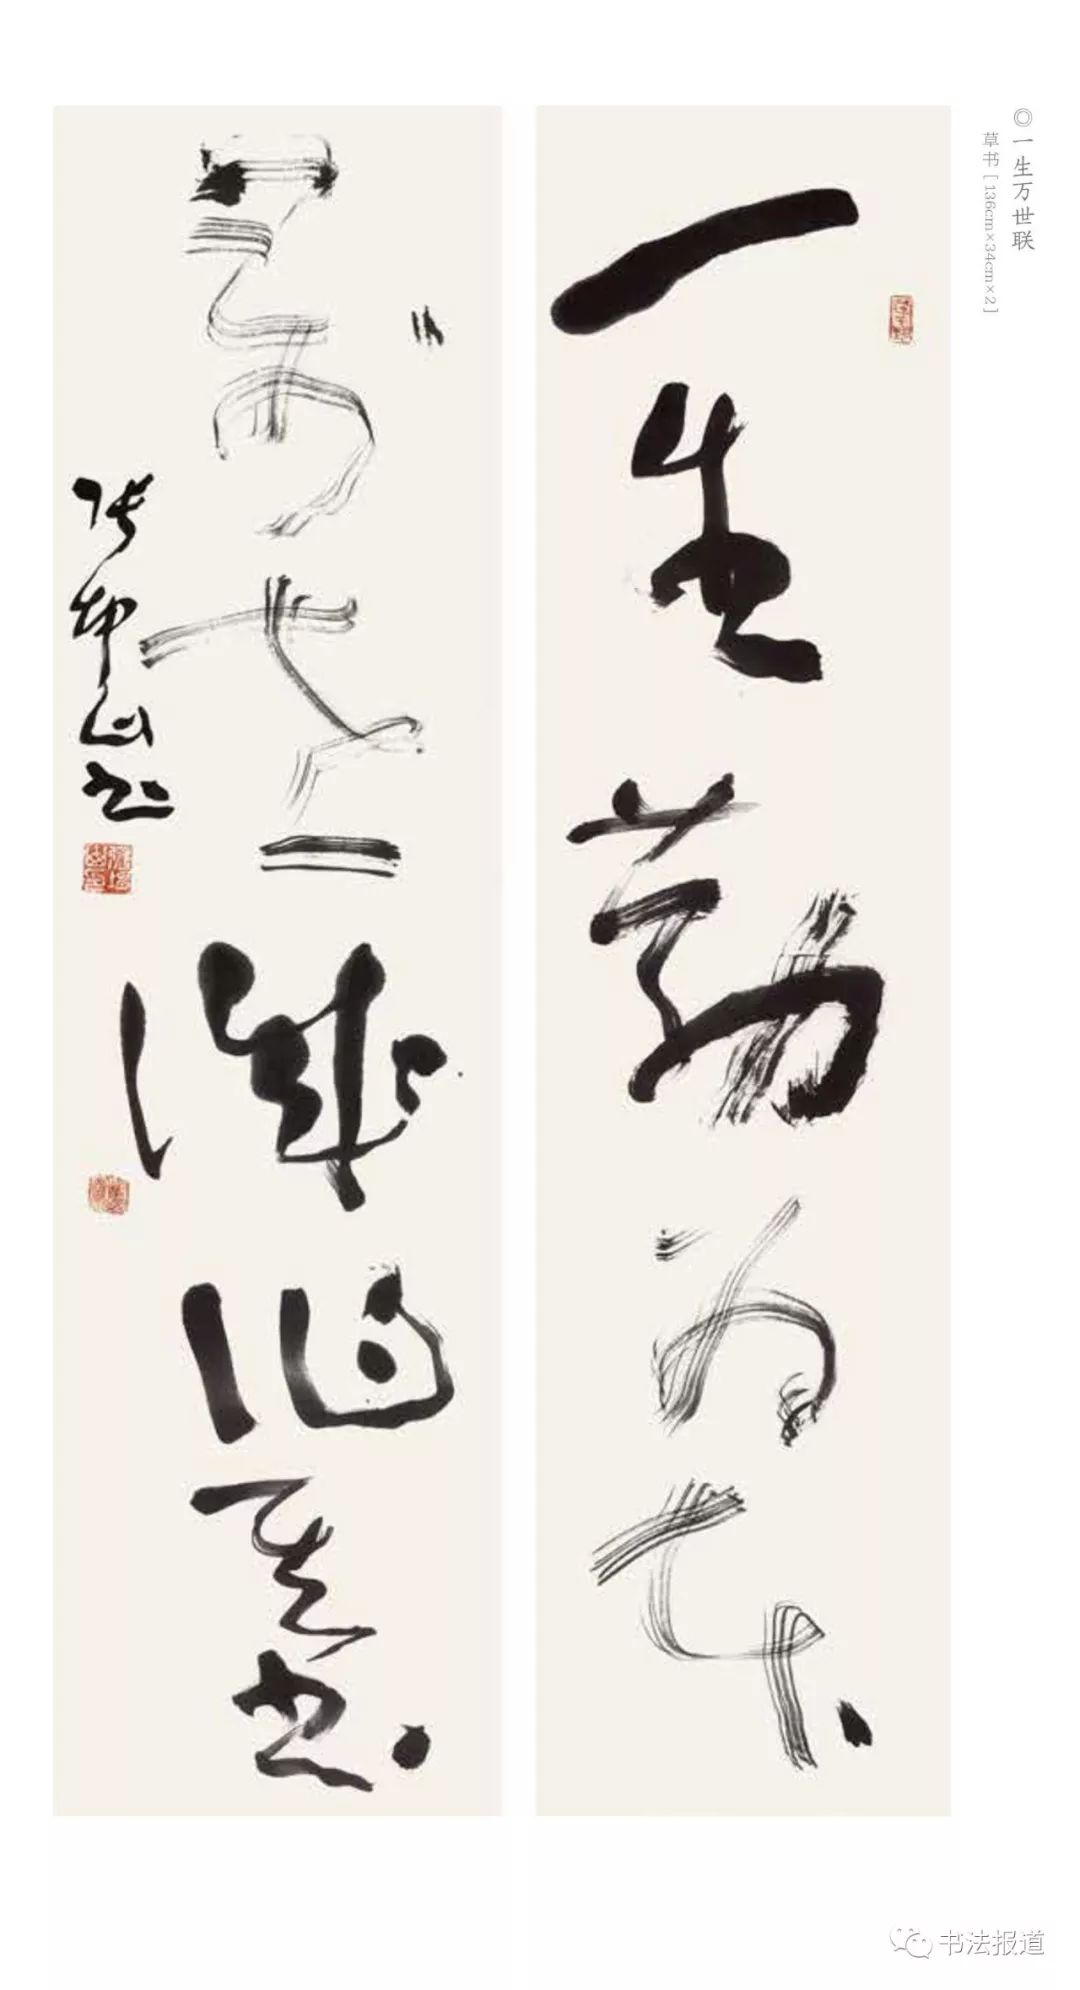 ◎一生万世联
草书［136cm×34cm×2］
一生勤为本
萬世诚作基
张坤山书
书法报道